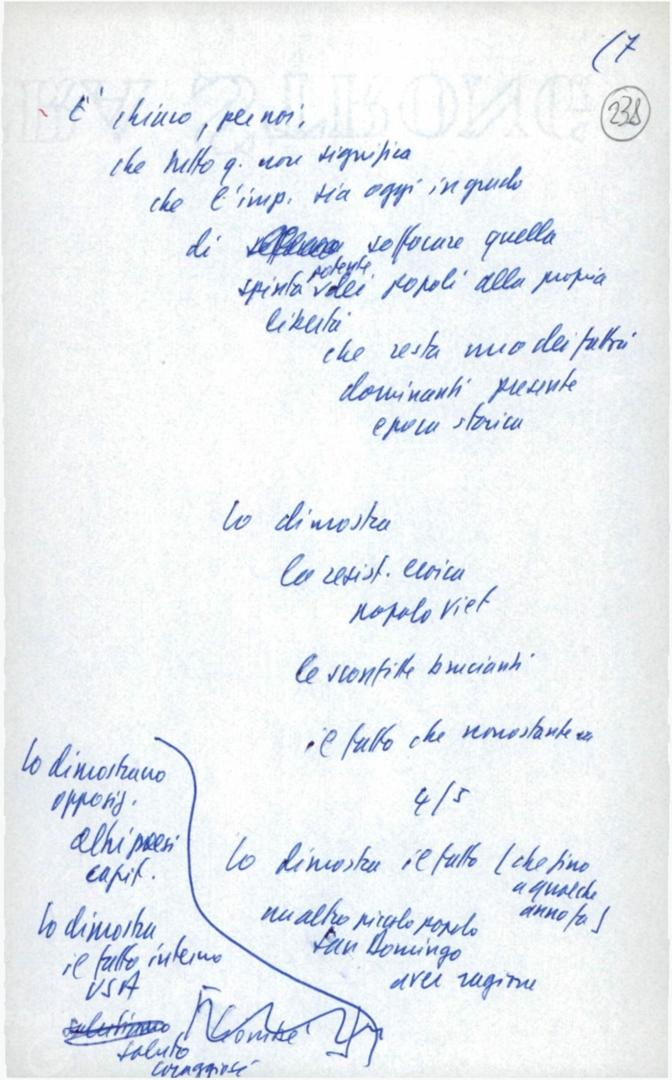 (7
238
E' chiaro, per noi:
che tutto q. non significa
che l'imp. sia oggi in grado
di soffocare quella
spinta potente dei popoli alla propria
libertà
che resta uno dei fattori
dominanti presente
epoca storica
Lo dimostra
la resist. eroica
popolo Viet
le sconfitte brucianti
il fatto che nonostante
4/5
Lo dimostra il fatto (che fino
a qualche
anno fa)
un altro piccolo popolo
San Domingo
aver ragione
Lo dimostrano
opposiz.
altri paesi
capit.
Lo dimostra
il fatto interno
USA
saluto
coraggiosi